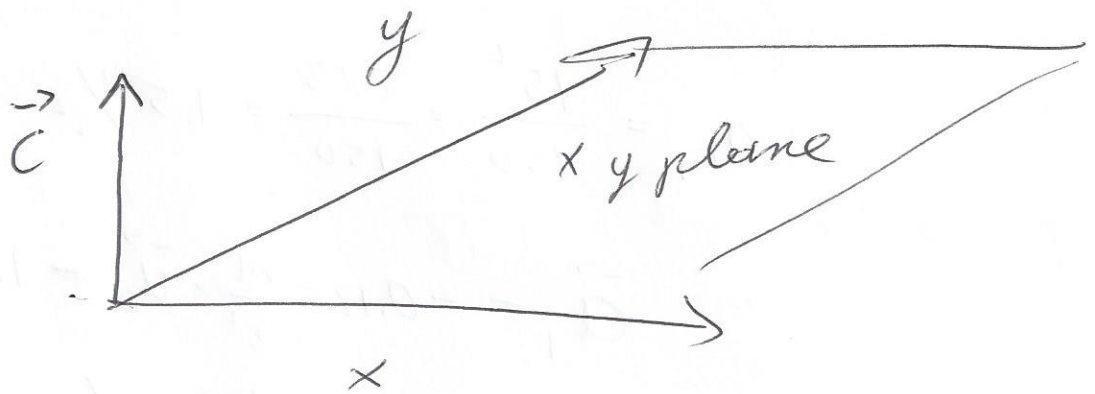 y
C⃗
x y plane
x